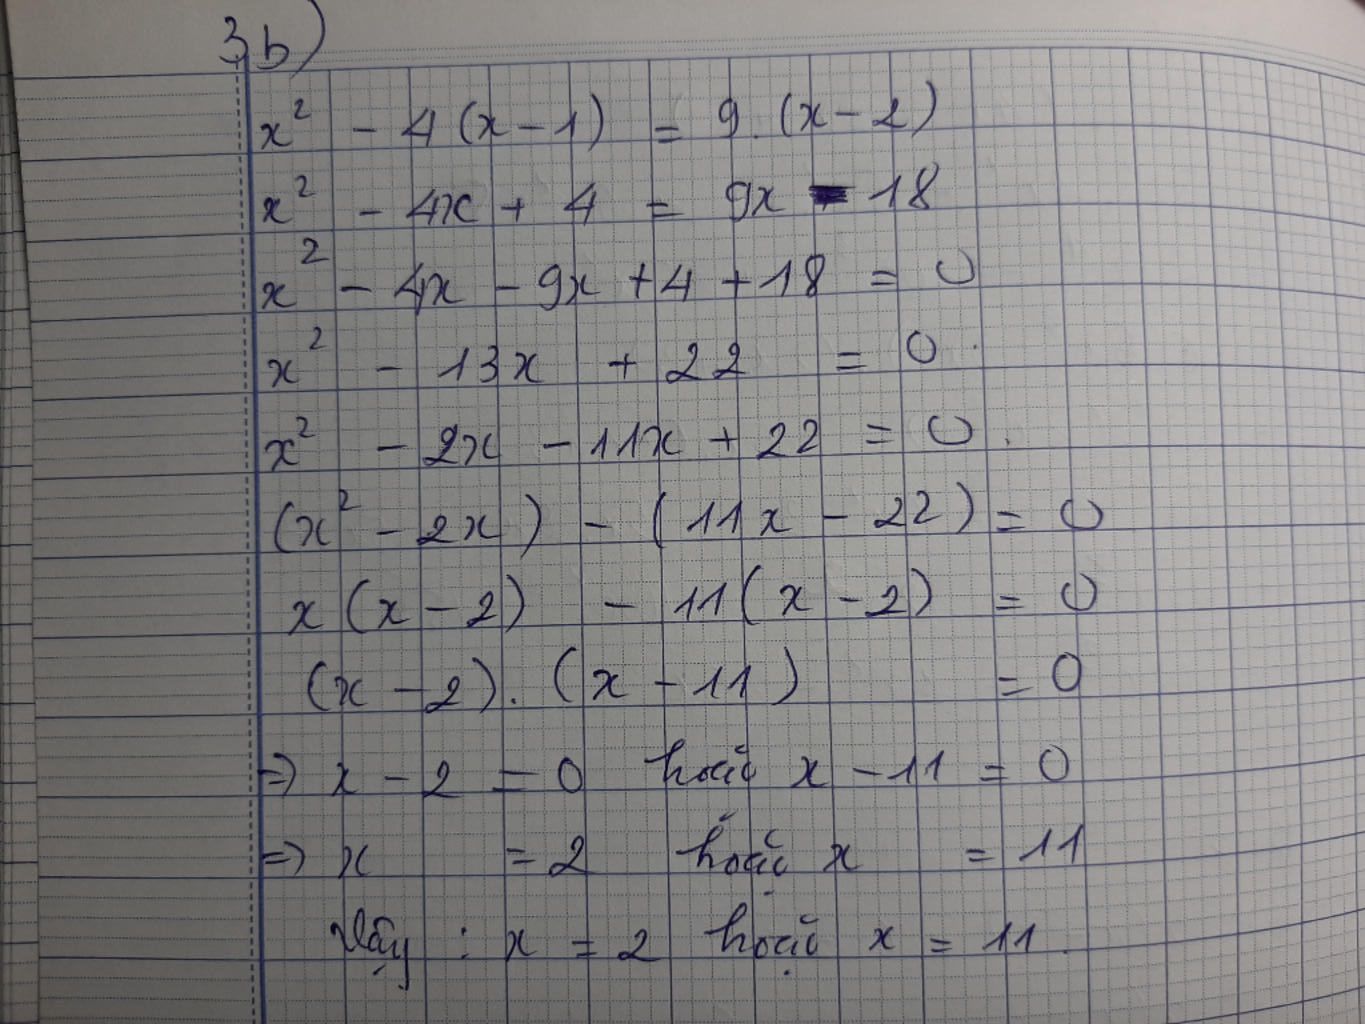 3b)
x² - 4(x-1) = 9.(x-2)
x² - 4x + 4 = 9x - 18
x² - 4x - 9x + 4 + 18 = 0
x² - 13x + 22 = 0.
x² - 2x - 11x + 22 = 0.
(x² - 2x) - (11x - 22) = 0
x(x-2) - 11(x-2) = 0
(x-2).(x-11) = 0
=> x - 2 = 0 hoặc x - 11 = 0
=> x = 2 hoặc x = 11
Vậy : x = 2 hoặc x = 11.